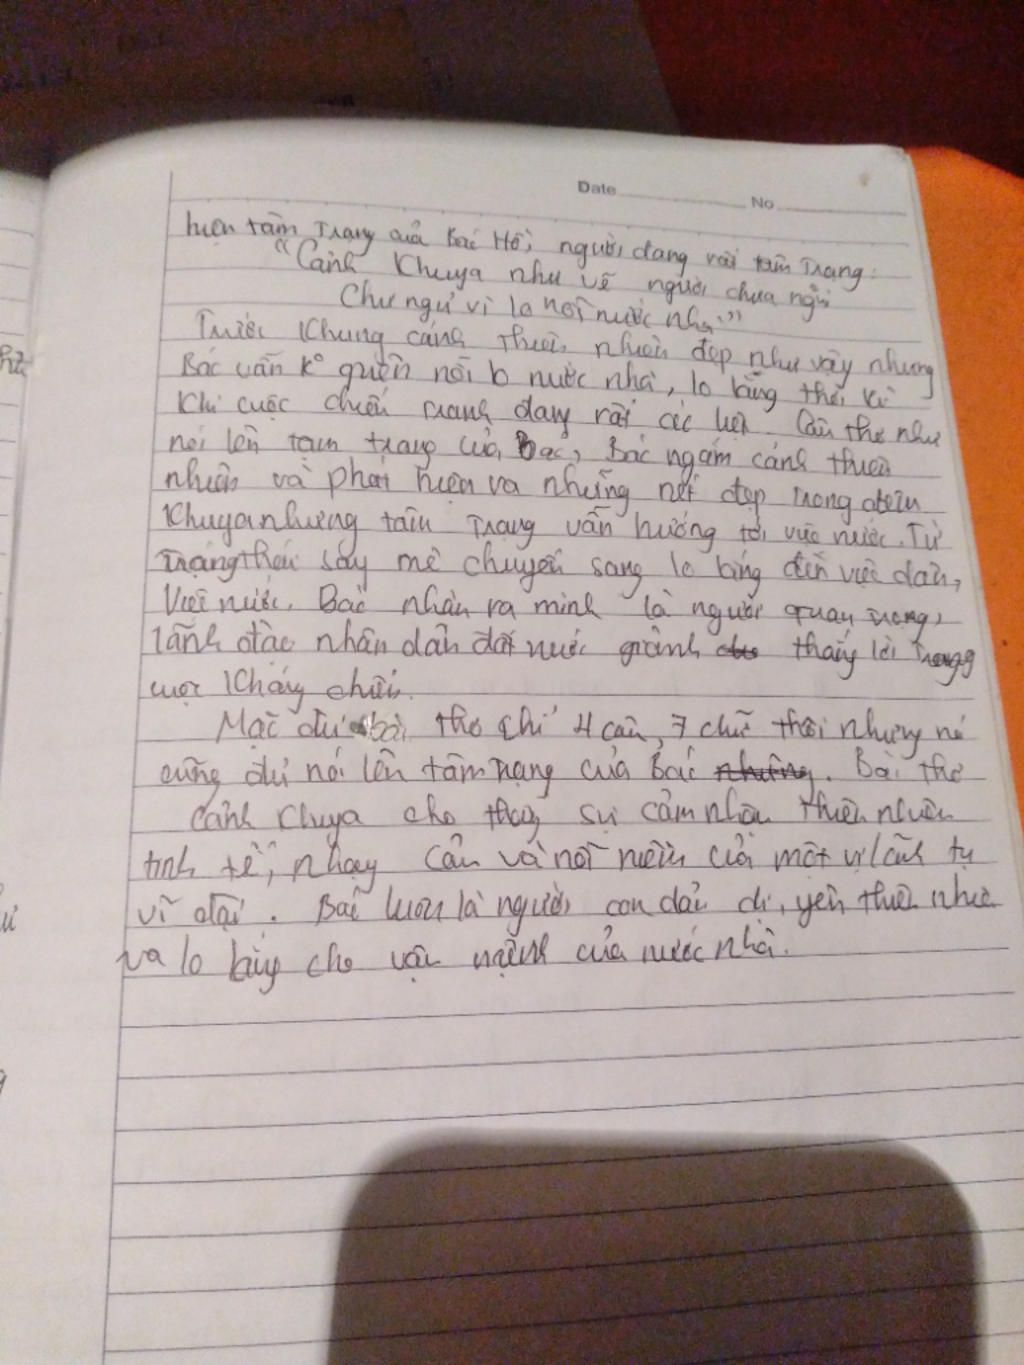 Date No
hiện tâm trạng của Bác Hồ, người đang rất tâm trạng:
"Cảnh khuya như vẽ người chưa ngủ
Chưa ngủ vì lo nỗi nước nhà"
Trước khung cảnh thiên nhiên đẹp như vậy nhưng
Bác vẫn k° quên nỗi lo nước nhà, lo lắng thời kì
khi cuộc chiến tranh đang rất ác liệt. Câu thơ như
nói lên tâm trạng của Bác, Bác ngắm cảnh thiên
nhiên và phát hiện ra những nét đẹp trong đêm
khuya nhưng tâm trạng vẫn hướng tới việc nước. Từ
trạng thái say mê chuyển sang lo lắng đến việc dân,
việc nước. Bác nhận ra mình là người quan trọng,
lãnh đạo nhân dân đất nước giành thắng lợi trong
cuộc kháng chiến.
Mặc dù bài thơ chỉ 4 câu, 7 chữ thôi nhưng nó
cũng đủ nói lên tâm trạng của Bác. Bài thơ
cảnh khuya cho thấy sự cảm nhận thiên nhiên
tinh tế, nhạy cảm và nỗi niềm của một vị lãnh tụ
vĩ đại. Bác luôn là người con dản dị, yêu thiên nhiên
và lo lắng cho vận mệnh của nước nhà.